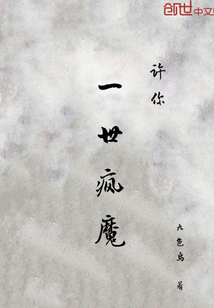 创世中文
许你
一世疯魔
九色鸟 著